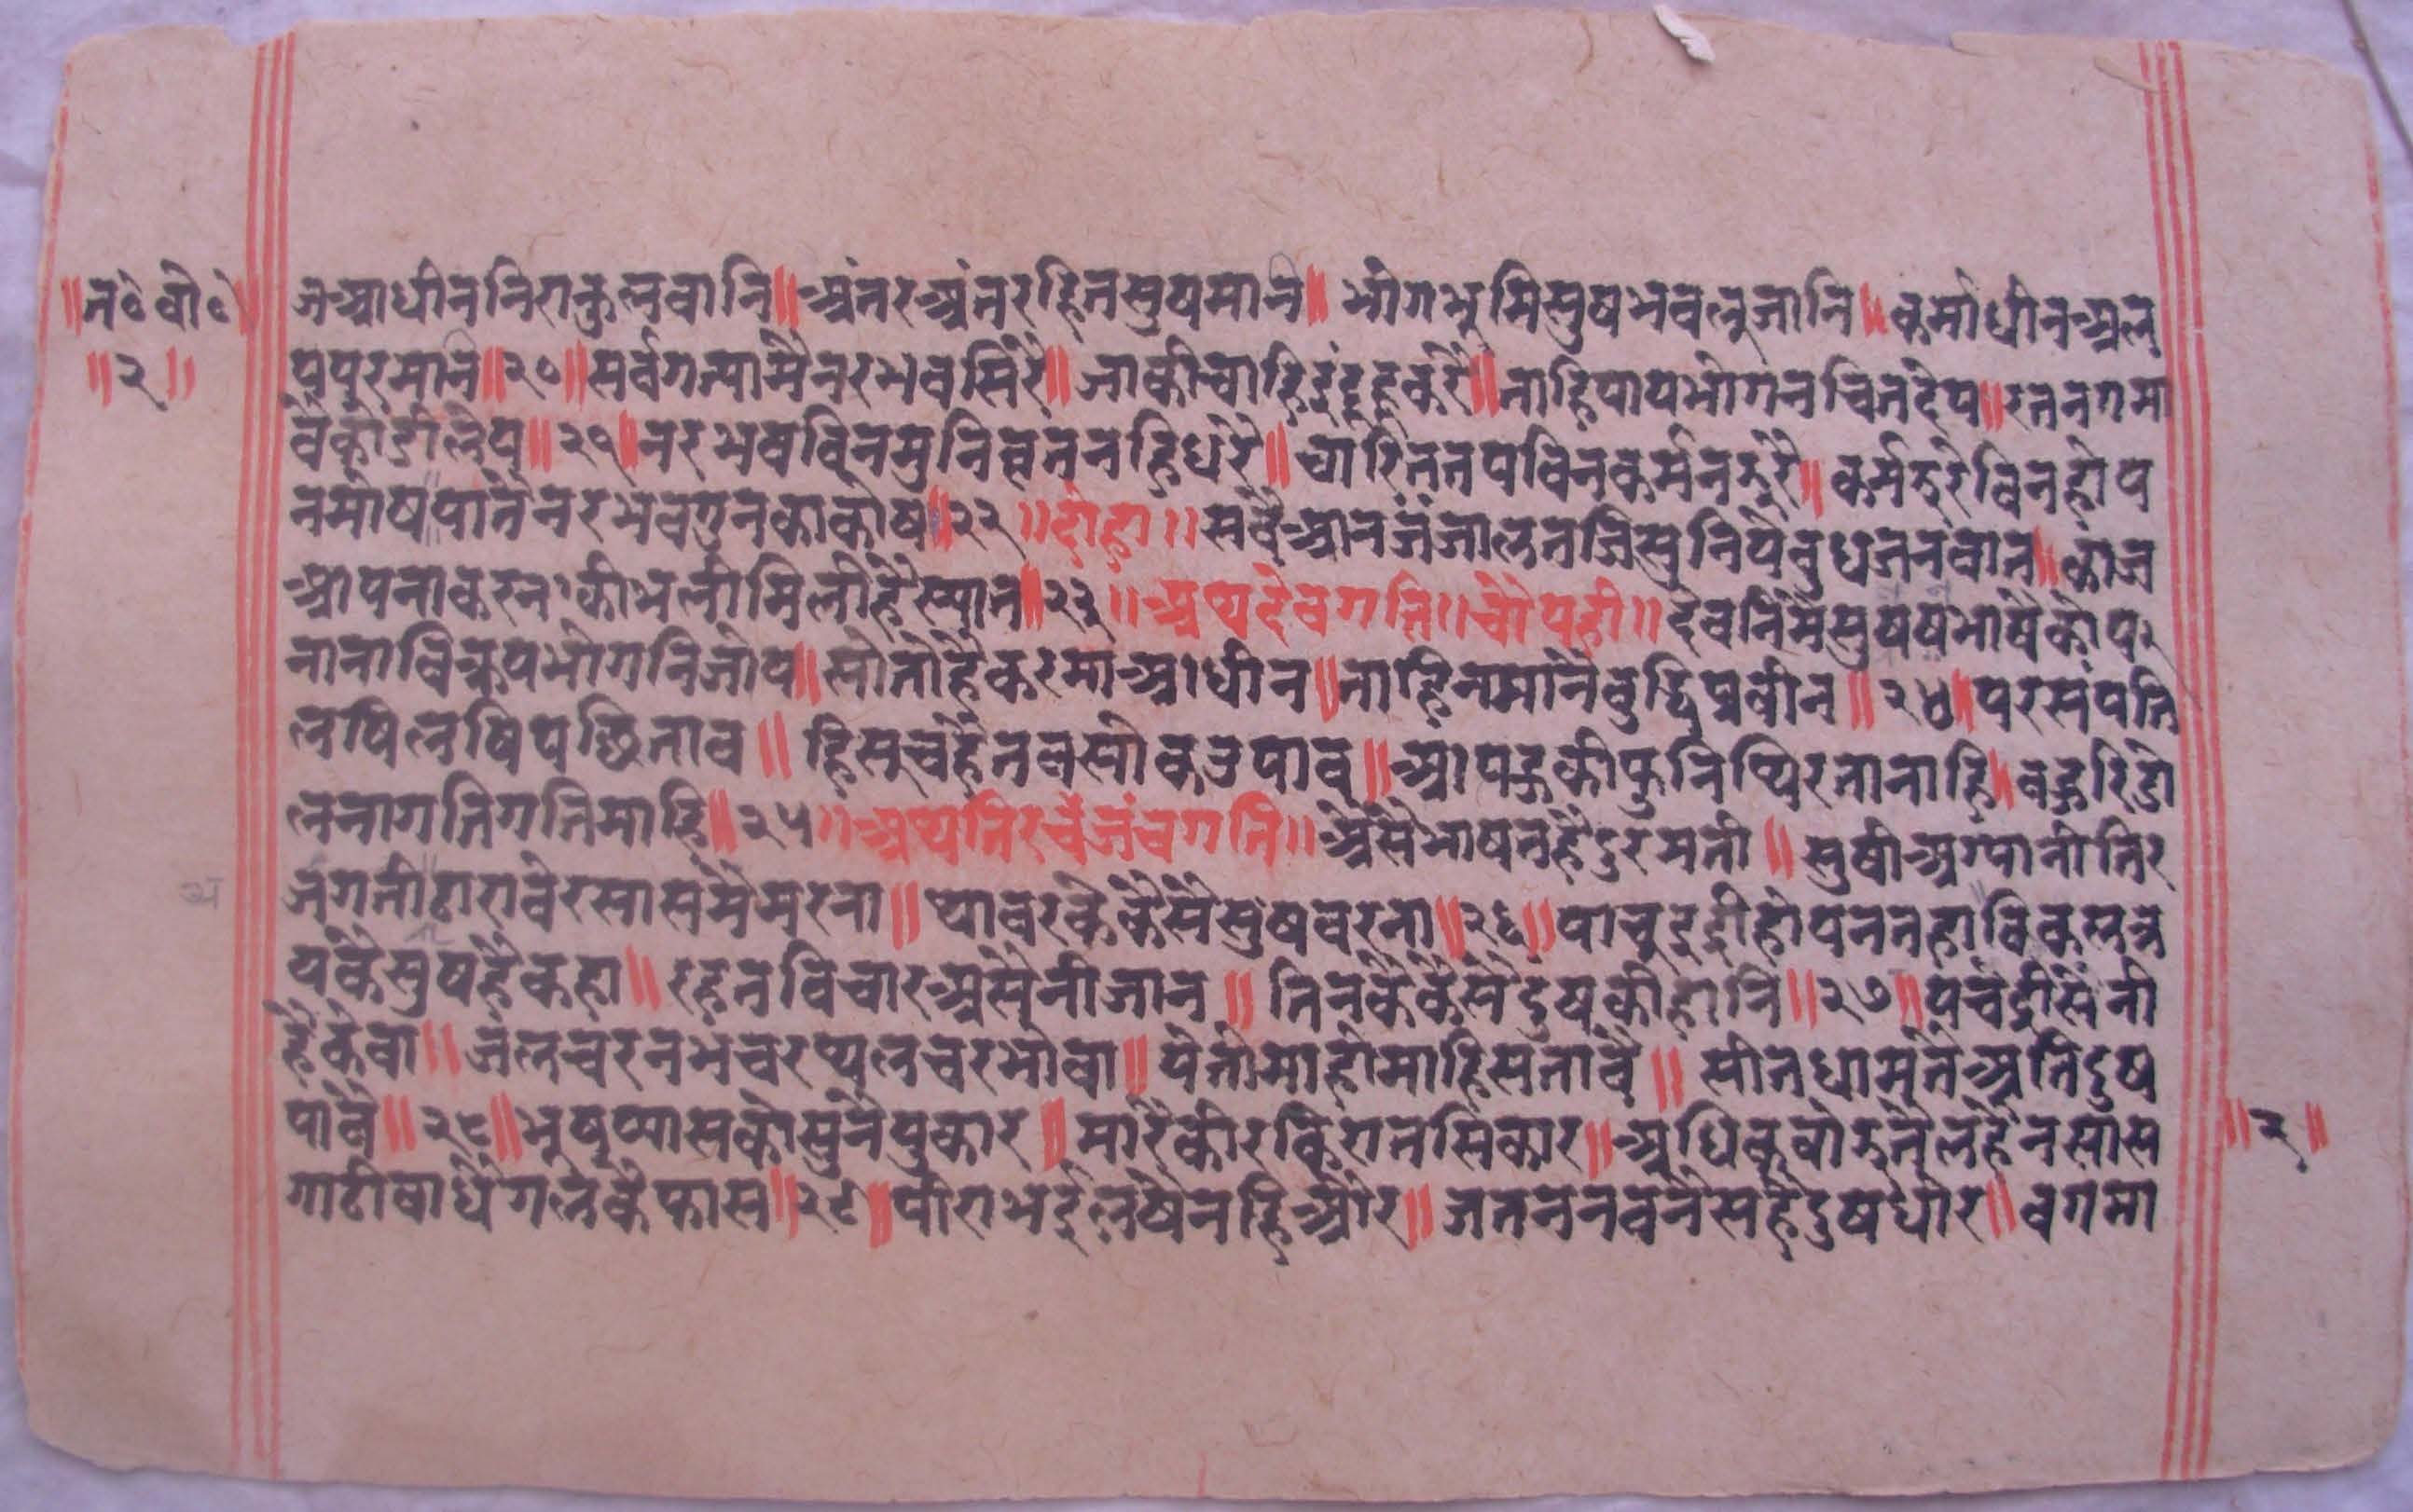 ॥त० बो०॥
॥२॥
जआधीननिराकुलवानि॥अंतरअंतरहितसुषमानि॥भोगभुमिसुषभवलुजानि॥कर्माधीनअल
पपुरमानि॥२०॥सर्वगत्यामैनरभवसिरै॥जाकीचाहिइंद्रहूकरै॥ताहिपायभोगनचितदेय॥रतनगमा
वैकोडीलेय॥२१॥नरभवविनमुनिव्रतनहिधरै॥चारिततपविनकर्मनझुरै॥कर्मझुरेविनहोय
नमोषयातेनरभवगुनकाकोष॥२२॥दोहा॥सवैआनजंजालतजिसुनियैबुधजनवान॥काज
आपनाकरनाकीभलीमिलीहैस्यान॥२३॥अथदेवगति॥चौपही॥देवनिमैसुषषभाषैकोय
नानाविकृपभोगनिजोय॥सोतोहैकरमाआधीन॥ताहिनमानैबुद्धिप्रवीन॥२४॥परसंपति
लषिलषिपछिताव॥हिसुचहैनवसोकउपाव॥आपहूकीफुनिथिरतानाहि॥बहुरिडो
लनागतिगतिमाहि॥२५॥अथतिरचंजंचगति॥अैसेभाषतहैदुरमती॥सुषीअग्यानीतिर
जंगतीठारावेरसासमैमरना॥थावरकेकैसैसुषवरना॥२६॥पाचुइद्रीहोयनतहाविकलत्र
यकैसुषहैकहा॥रहतविचारअसैनीजान॥तिनकैकैसेदुषकीहानि॥२७॥पंचंद्रीसैनी
हैकेवा॥जलचरनभचरथलचरभोवा॥येतोमाहोमाहिसतावै॥सीतधामतेअतिदुष
पावै॥२८॥भुषप्यासकोसुनैपुकार॥मारैकीरकिरातसिकार॥अधिकबोझतेलहैनसास
गाढीबाधैगलकैफास॥२९॥पीराभईलषैनहिओर॥जतननवनेसहैदुषधोर॥वगमा
॥२॥